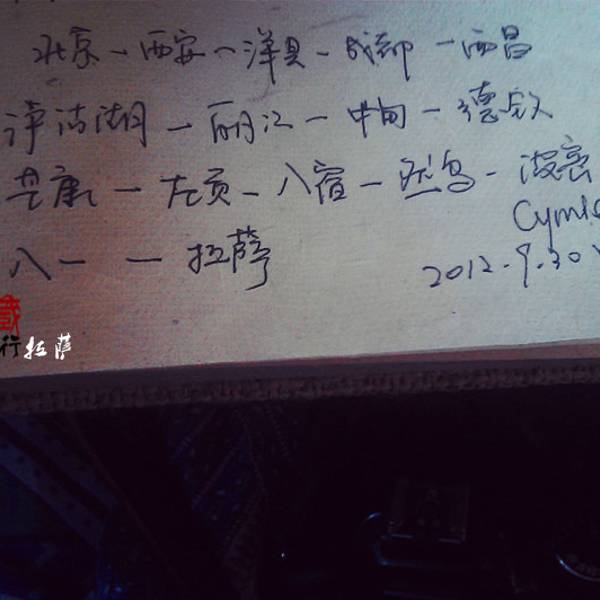 北京－西安－洋县－成都－西昌
泸沽湖－丽江－中甸－德钦
芒康－左贡－八宿－然乌－波密
八一 － 拉萨
2012.9.30
行拉萨